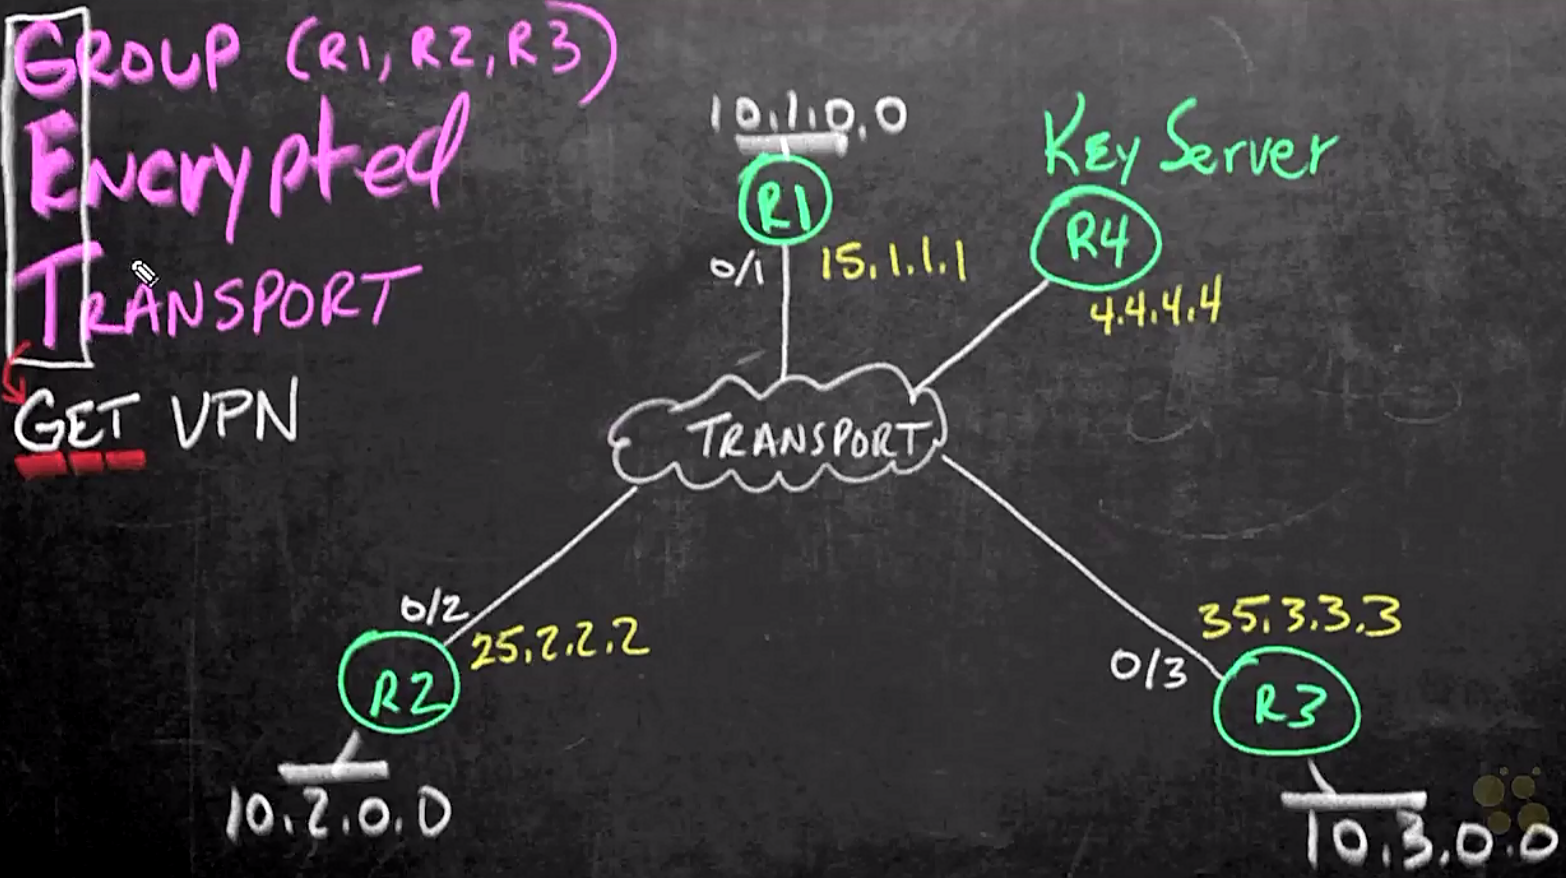 GROUP (R1, R2, R3)
Encrypted
TRANSPORT
GET VPN
10.1.0.0
R1
0/1
15.1.1.1
Key Server
R4
4.4.4.4
TRANSPORT
0/2
25.2.2.2
R2
10.2.0.0
35.3.3.3
0/3
R3
10.3.0.0